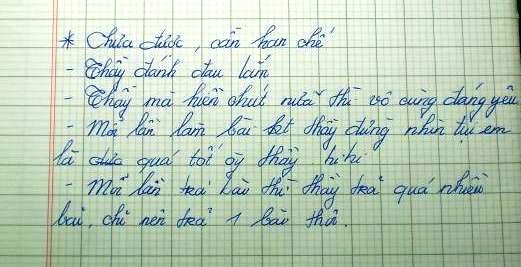 * Chưa được, cần hạn chế
- Thầy đánh đau lắm
- Thầy mà hiền chút nữa thì vô cùng đáng yêu
- Mỗi lần làm bài kt thầy đừng nhìn tụi em
là quá tốt gy thầy hihi
- Mỗi lần trả bài thì thầy trả quá nhiều
bài, chỉ nên trả 1 bài thôi.